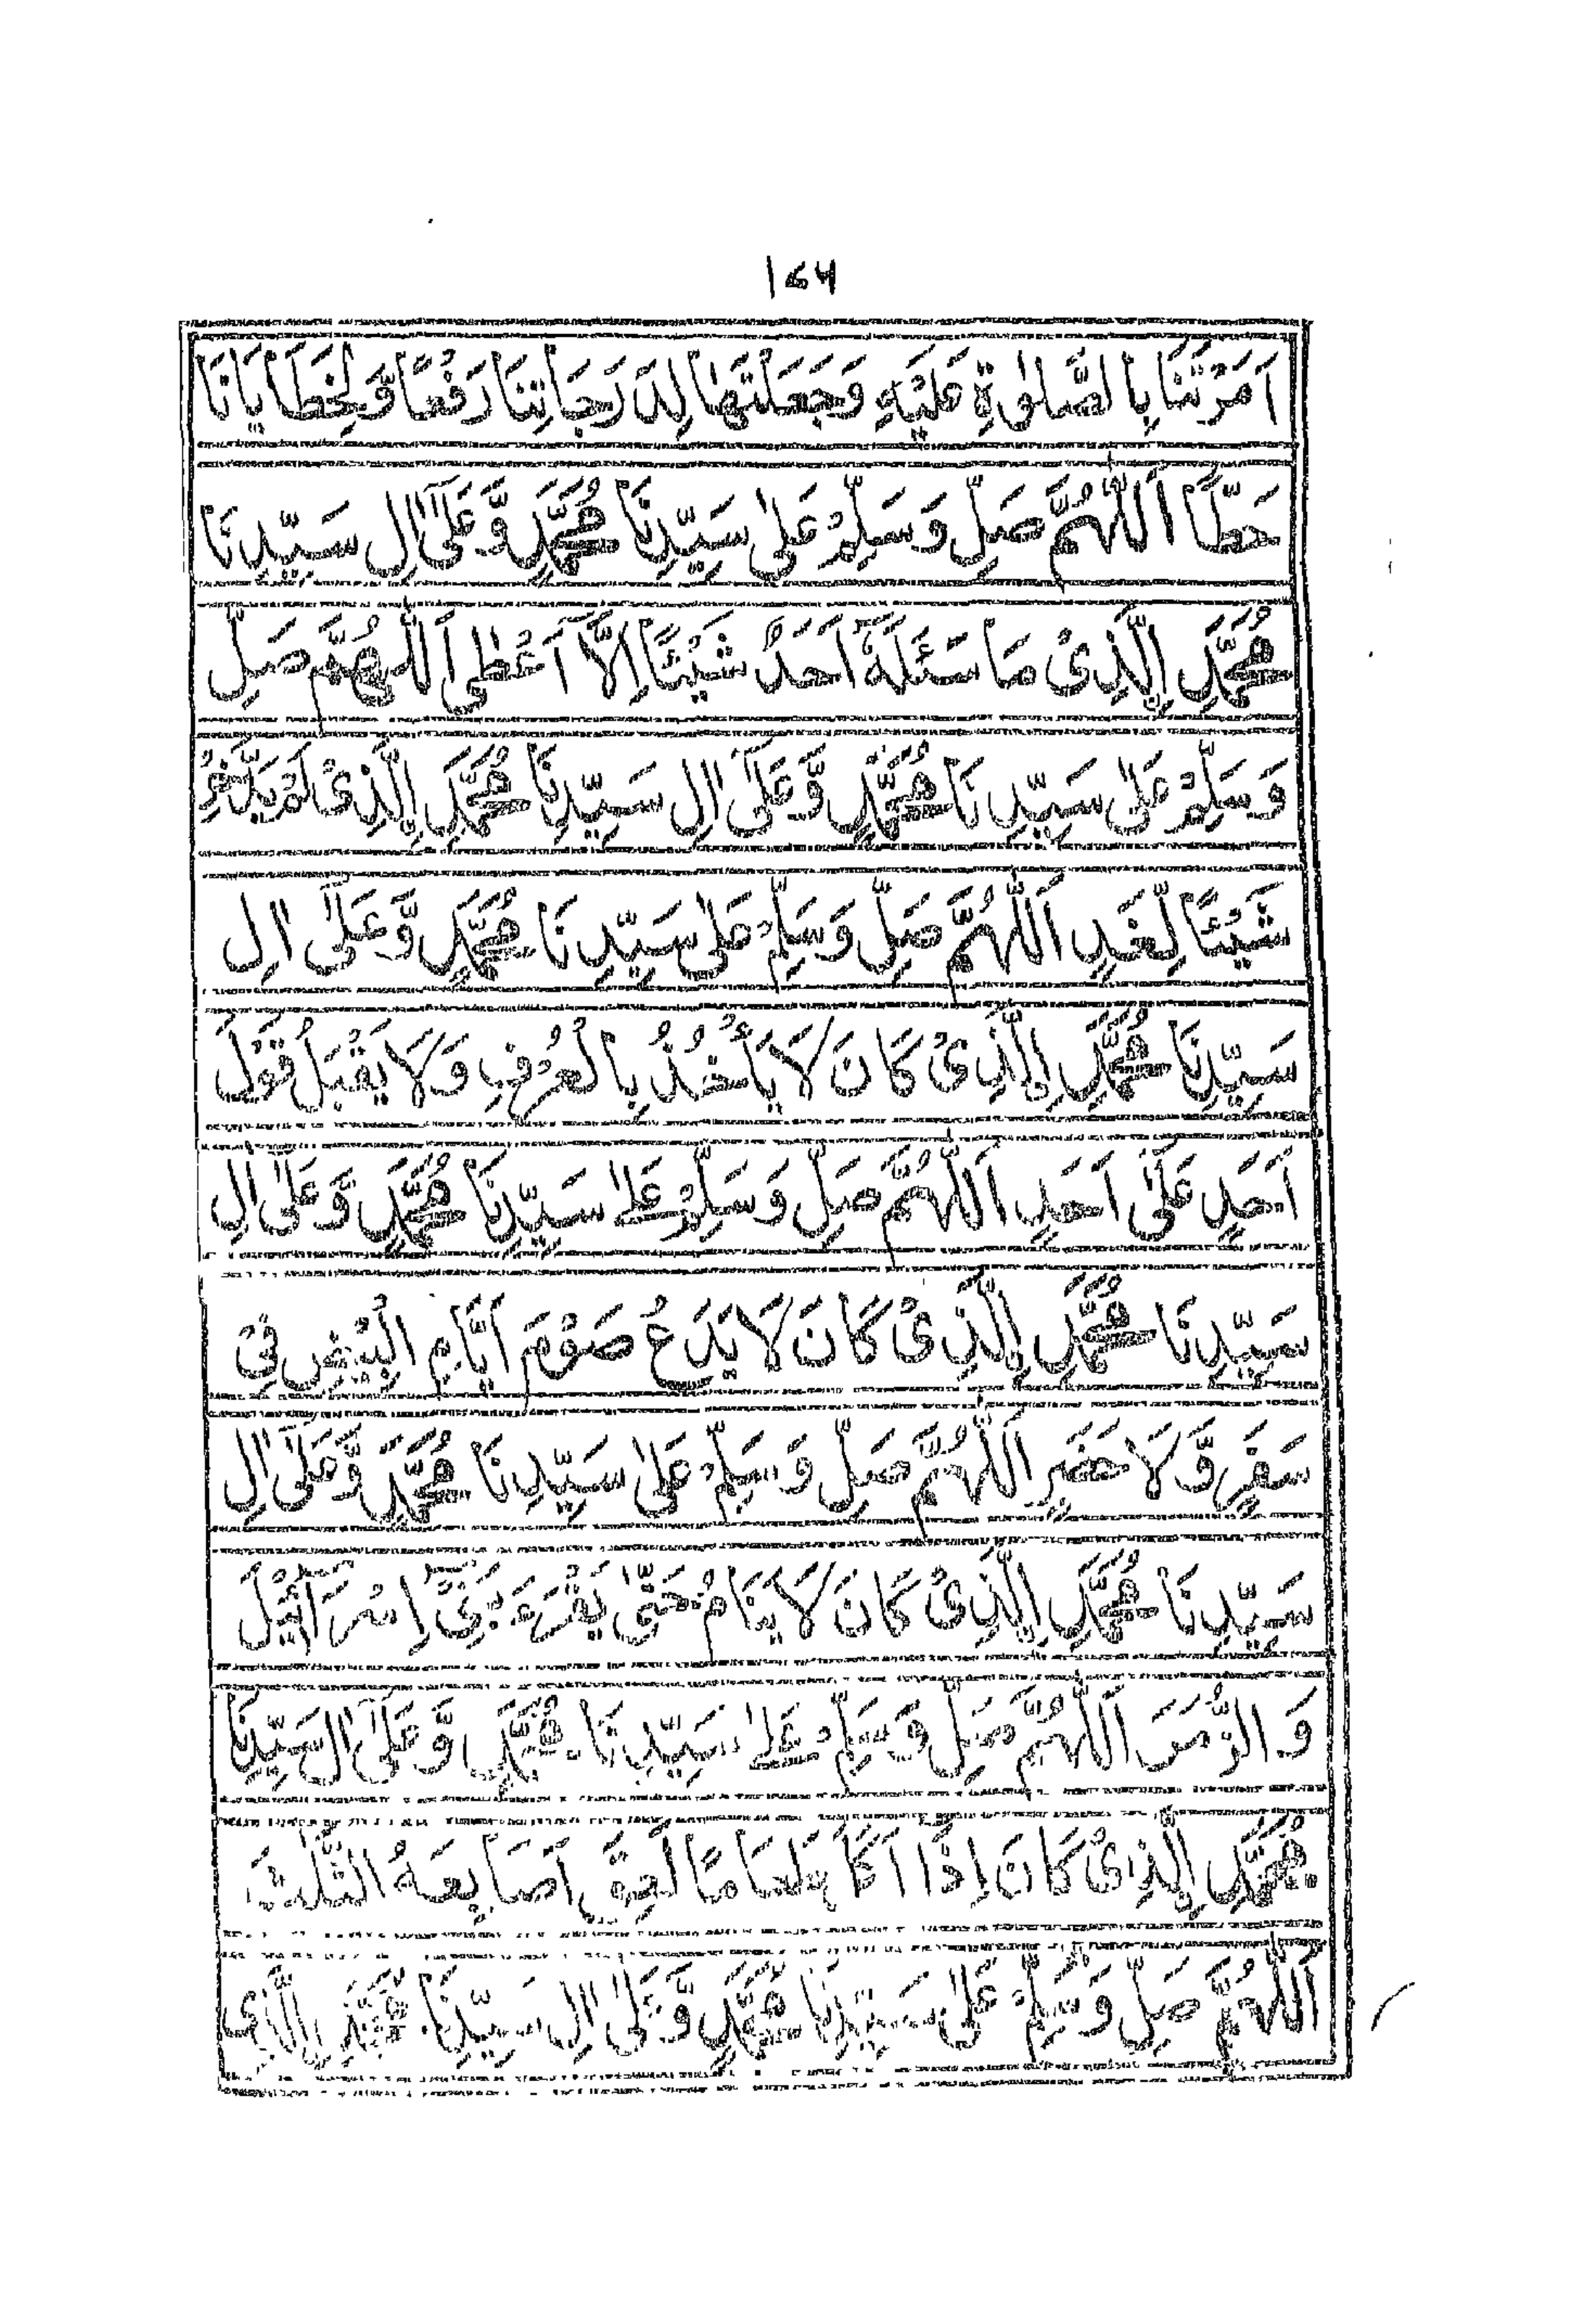 ۱۷۶
اَمَرْتَنَا بِالصَّلٰوةِ عَلَيْهِ وَجَعَلْتَهَا لِدَرَجَاتِنَا رَفْعًا وَّلِخَطَايَانَا
حَطًّا اَللّٰهُمَّ صَلِّ وَسَلِّمْ عَلٰى سَيِّدِنَا مُحَمَّدٍ وَّعَلٰٓى اٰلِ سَيِّدِنَا
مُحَمَّدِ اِلَّذِىْ مَا سَئَلَهٗٓ اَحَدٌ شَيْئًا اِلَّآ اَعْطٰى اَللّٰهُمَّ صَلِّ
وَسَلِّمْ عَلٰى سَيِّدِنَا مُحَمَّدٍ وَّعَلٰٓى اٰلِ سَيِّدِنَا مُحَمَّدِ اِلَّذِىْ لَمْ يَدَّخِرْ
شَيْئًا لِّغَدٍ اَللّٰهُمَّ صَلِّ وَسَلِّمْ عَلٰى سَيِّدِنَا مُحَمَّدٍ وَّعَلٰٓى اٰلِ
سَيِّدِنَا مُحَمَّدِ اِلَّذِىْ كَانَ لَا يَأْخُذُ بِالْعُرْفِ وَلَا يَقْبَلُ قَوْلَ
اَحَدٍ عَلٰٓى اَحَدٍ اَللّٰهُمَّ صَلِّ وَسَلِّمْ عَلٰى سَيِّدِنَا مُحَمَّدٍ وَّعَلٰٓى اٰلِ
سَيِّدِنَا مُحَمَّدِ اِلَّذِىْ كَانَ لَا يَدَعُ صَوْمَ اَيَّامِ الْبِيْضِ فِىْ
سَفَرٍ وَّلَا حَضَرٍ اَللّٰهُمَّ صَلِّ وَسَلِّمْ عَلٰى سَيِّدِنَا مُحَمَّدٍ وَّعَلٰٓى اٰلِ
سَيِّدِنَا مُحَمَّدِ اِلَّذِىْ كَانَ لَا يَنَامُ حَتّٰى يَقْرَءَ بَنِىْٓ اِسْرَآئِيْلَ
وَالزُّمَرَ اَللّٰهُمَّ صَلِّ وَسَلِّمْ عَلٰى سَيِّدِنَا مُحَمَّدٍ وَّعَلٰٓى اٰلِ سَيِّدِنَا
مُحَمَّدِ اِلَّذِىْ كَانَ اِذَآ اَكَلَ طَعَامًا لَعِقَ اَصَابِعَهُ الثَّلٰثَ
اَللّٰهُمَّ صَلِّ وَسَلِّمْ عَلٰى سَيِّدِنَا مُحَمَّدٍ وَّعَلٰٓى اٰلِ سَيِّدِنَا مُحَمَّدِ اِلَّذِى